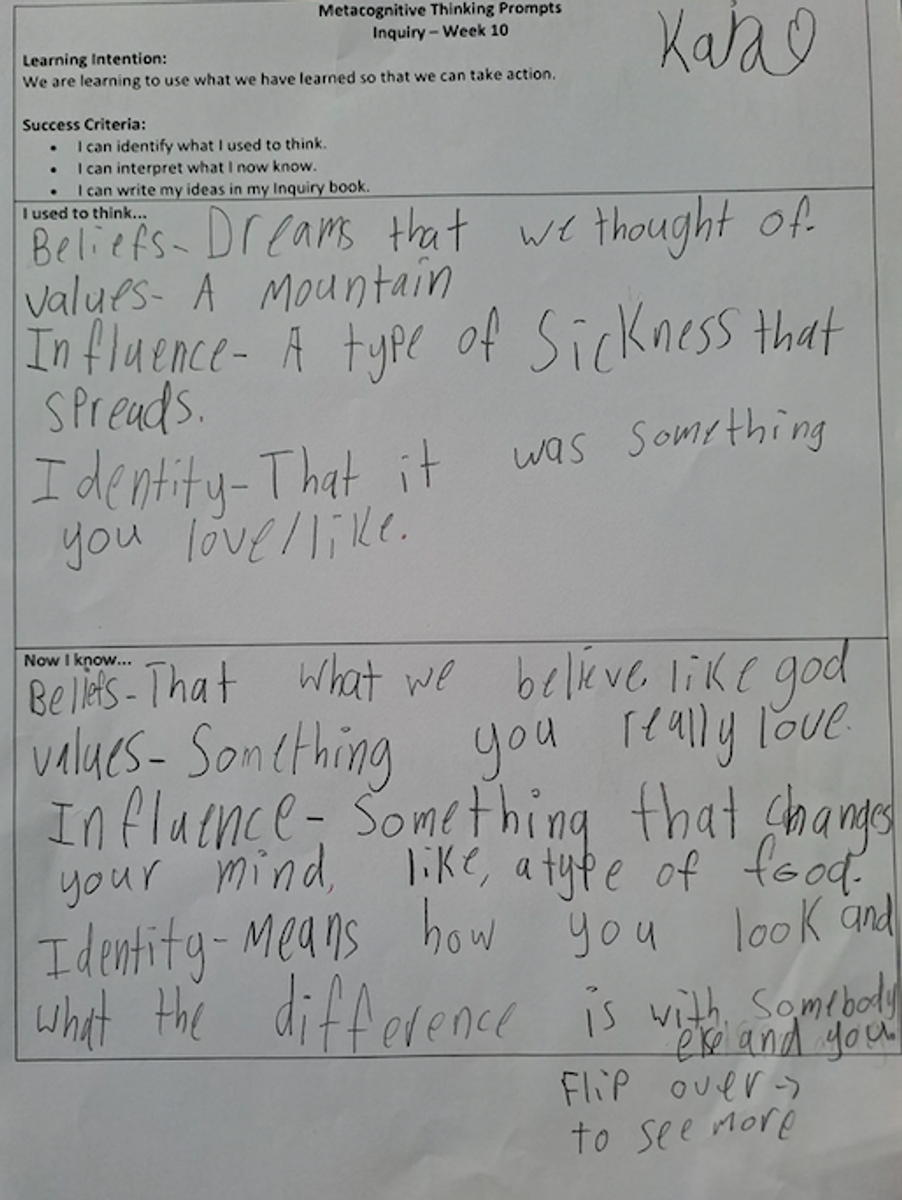 Metacognitive Thinking Prompts
Inquiry – Week 10
Learning Intention:
We are learning to use what we have learned so that we can take action.
Success Criteria:
• I can identify what I used to think.
• I can interpret what I now know.
• I can write my ideas in my Inquiry book.
I used to think...
Beliefs- Dreams that we thought of.
Values- A Mountain
Influence- A type of Sickness that
spreads.
Identity- That it was something
you love/like.
Now I know...
Beliefs- That what we believe, like god
values- Something you really love.
Influence- Something that changes
your mind, like, a type of food.
Identity- Means how you look and
what the difference is with somebody
and you.
Flip over →
to see more